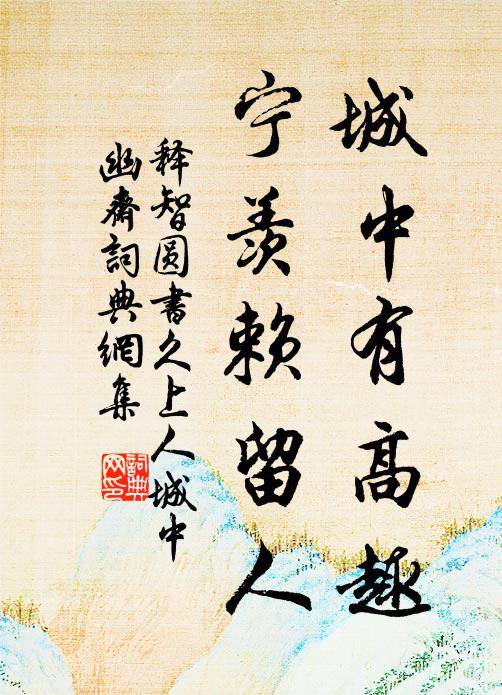 城中有高趣
宁羡赖留人
释智圆书久上人城中
幽斋词典網集
詞典网印